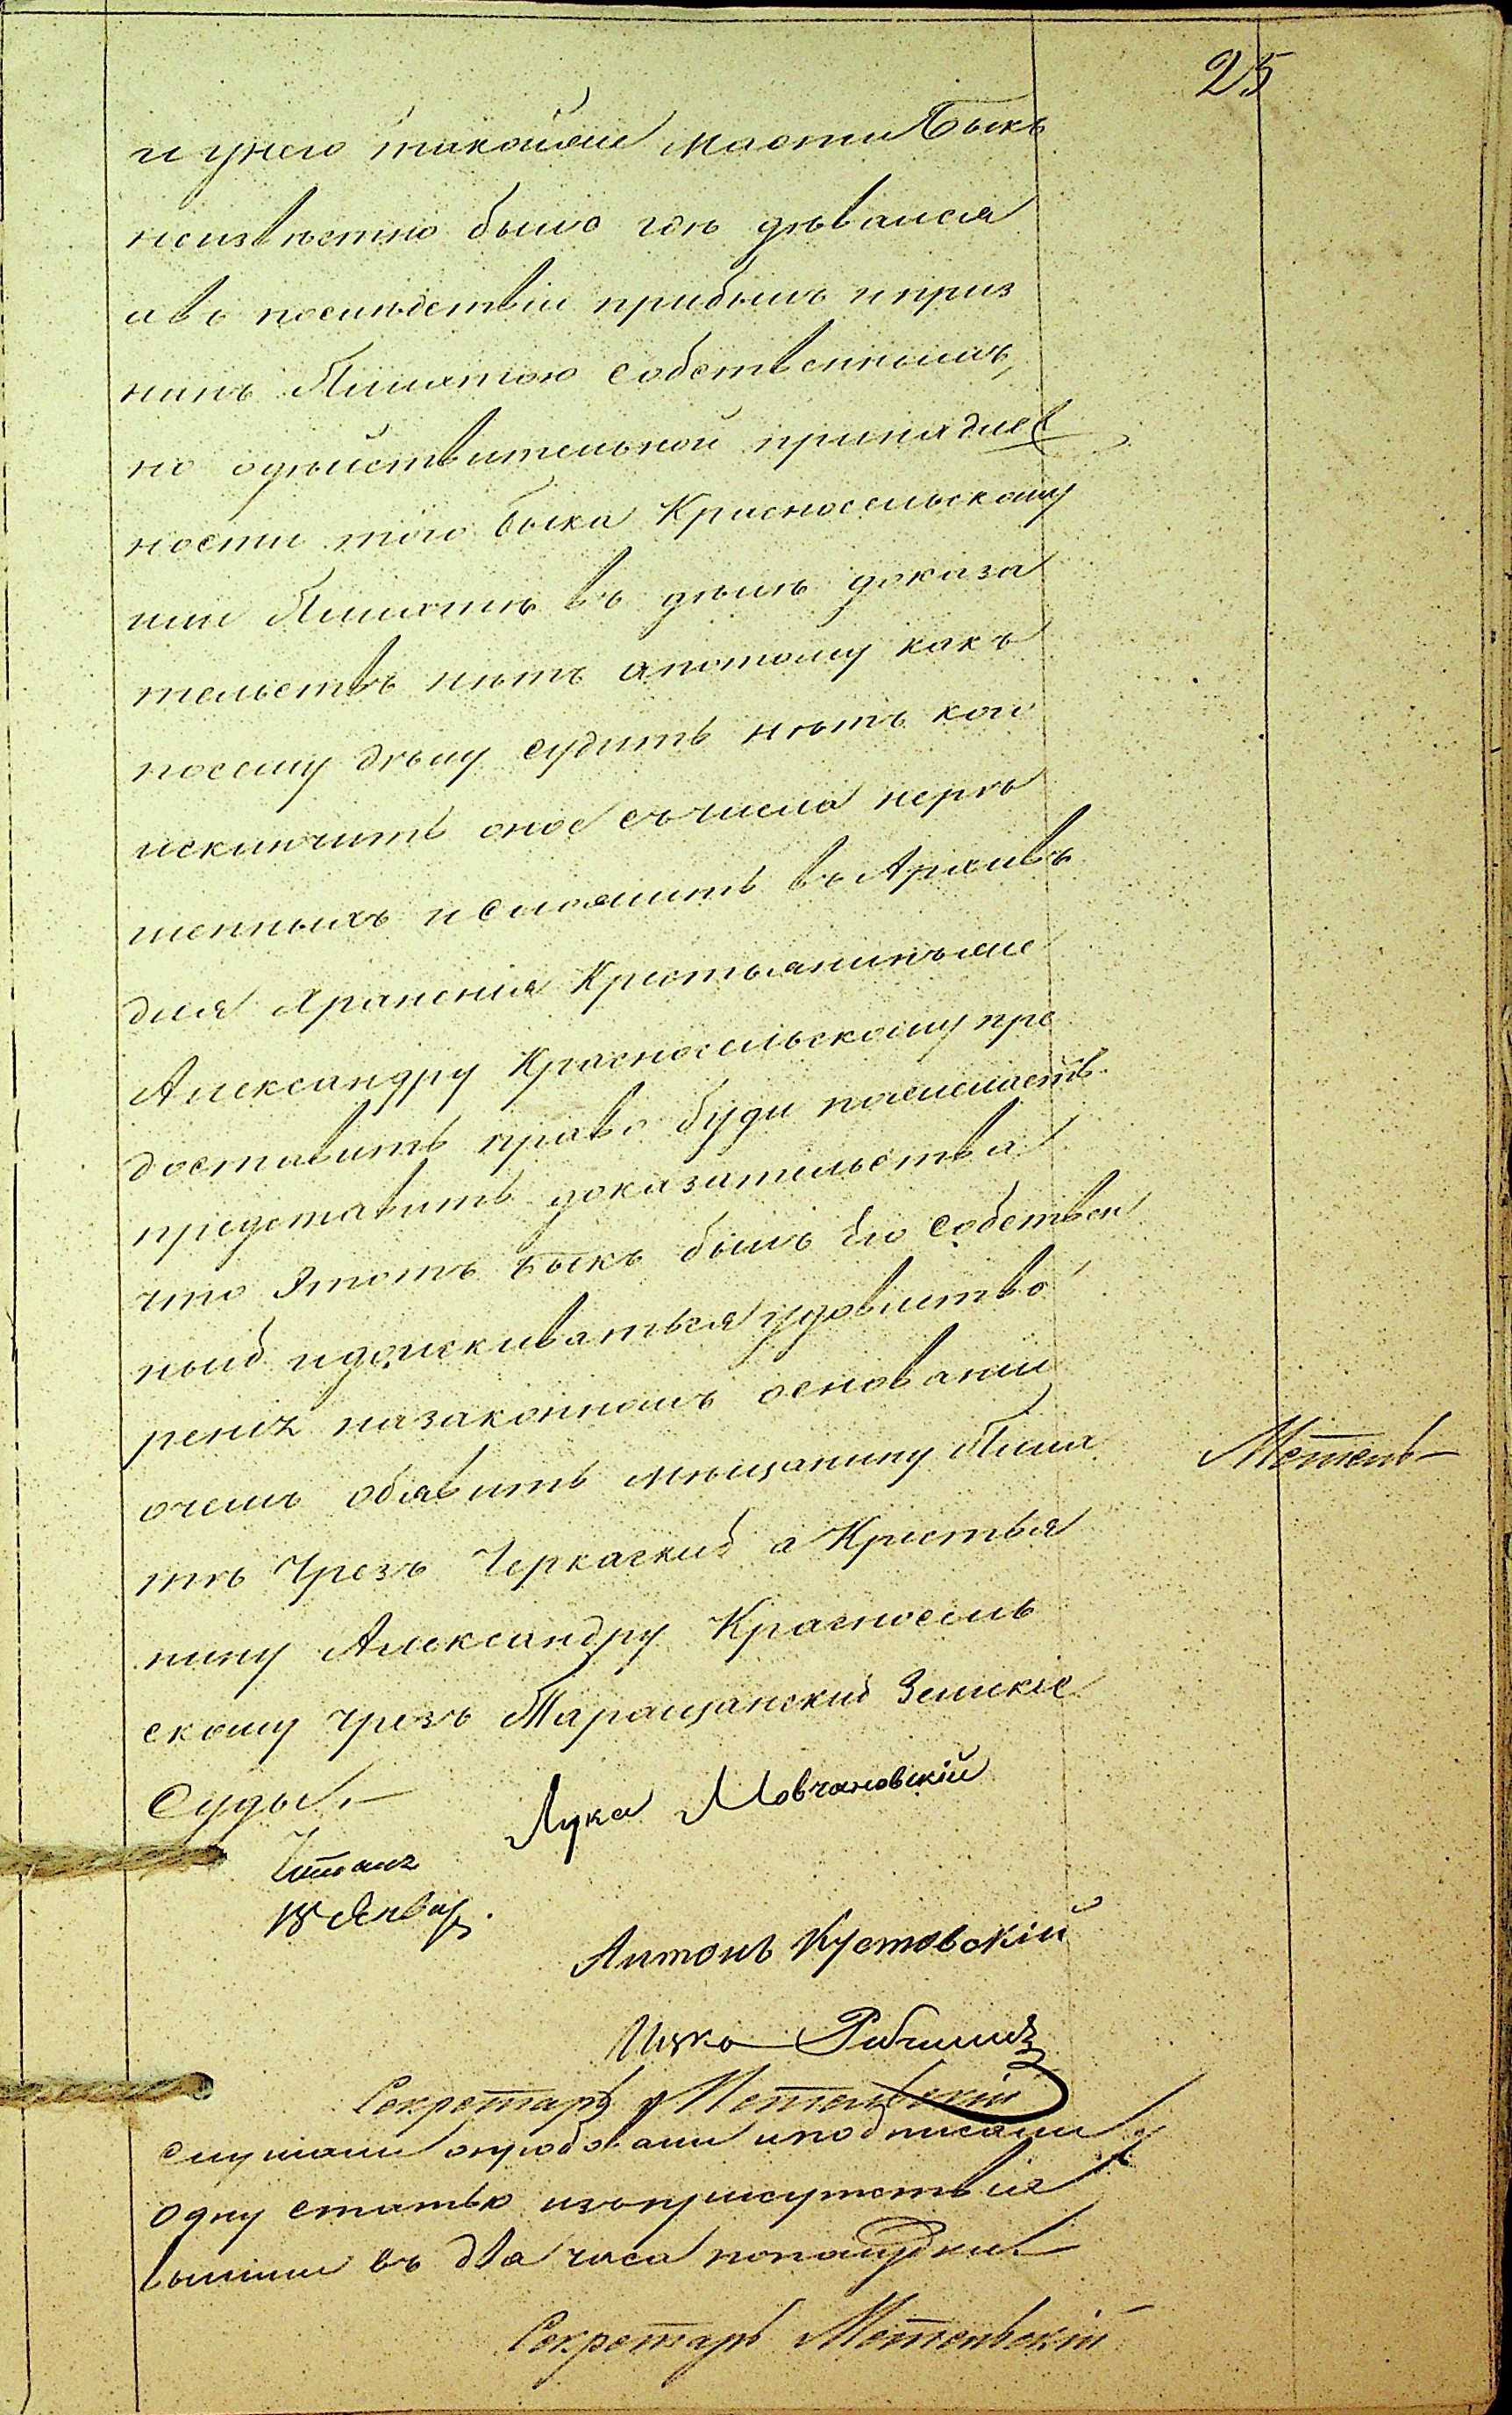 25
и унего такойже масти Быкъ
неизвѣстно было гдѣ дѣвался
авъ послѣдствіи прибылъ иприз
нанъ Пинятою собственнымъ,
но одѣйствительной принадлеж
ности того быка Красносельскому
или Пинятѣ въ дѣлѣ доказа
тельствъ нѣтъ апотому какъ
посему дѣлу судить нѣтъ кого
исключить оное съчисла нерѣ
шенныхъ исложить въ Архивъ
для храненія Крестьянинуже
Александру Красносельскому пре
доставить право буди пожелаетъ
представить доказательства
что этотъ быкъ былъ Его собствен
ный идоискиваться удовлетво
ренія назаконномъ основаніи
очемъ объявить мѣщанину Пиня
тѣ чрезъ Черкаскій а Крестья
нину Александру Красносель
скому чрезъ Таращанскій Земскіе
Суды.—
Метель—
Лука Мовчановскій
Читалъ
18 Январ.
Антонъ Кустовскій
Ицко
Секретарь Метельскій
слушали опробовали иподписали
одну статью изприсутствія
вышли въ два часа пополудни
Секретарь Метельскій